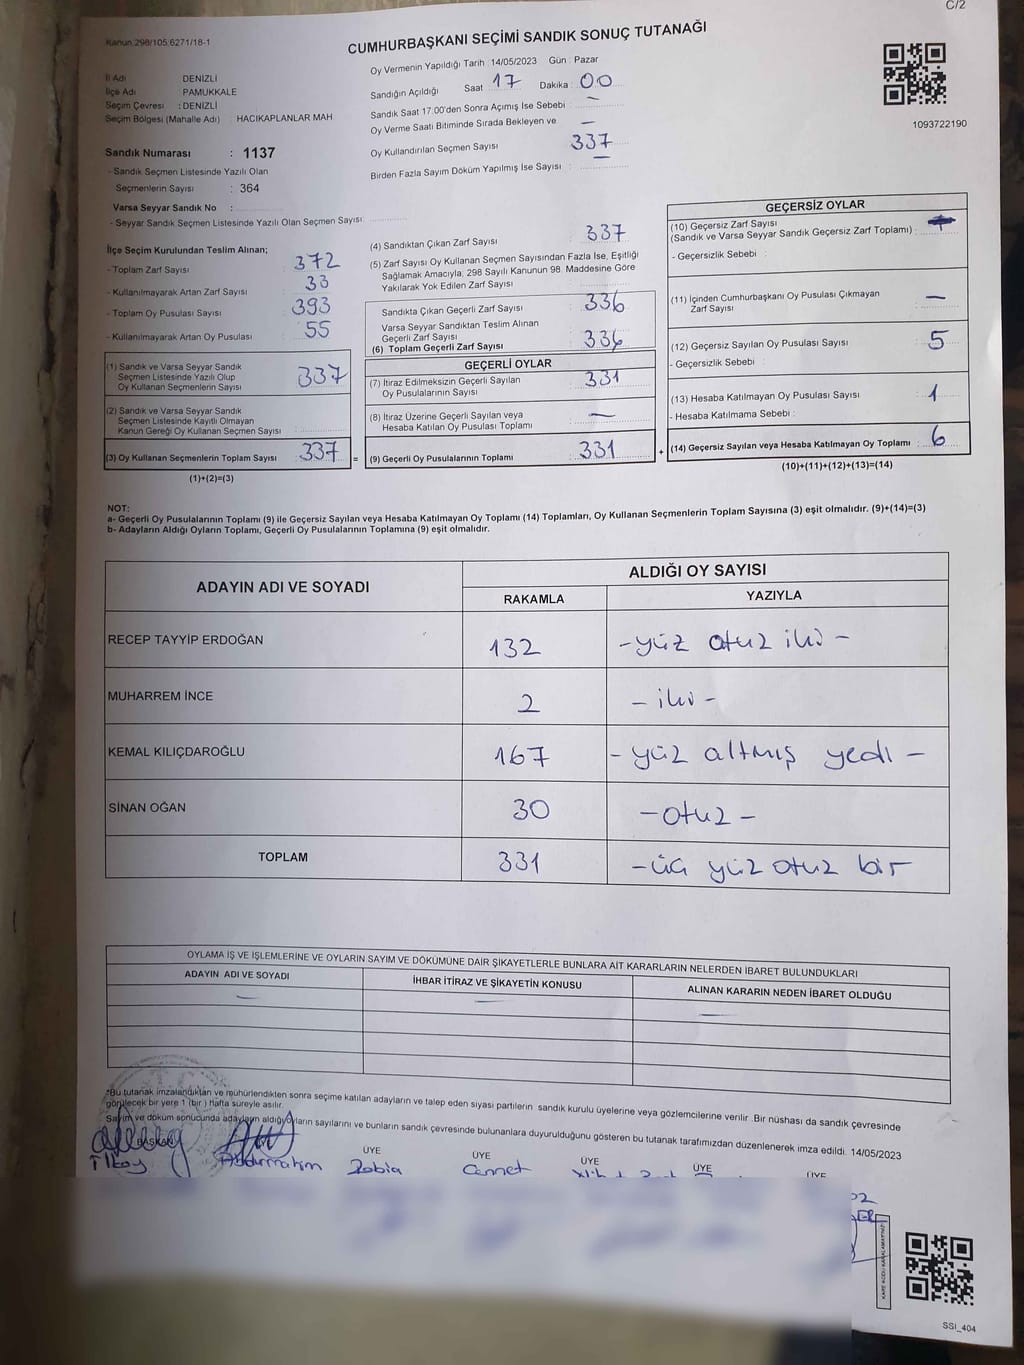 C/2
Kanun 298/105 6271/18-1
CUMHURBAŞKANI SEÇİMİ SANDIK SONUÇ TUTANAĞI
İl Adı DENİZLİ
İlçe Adı PAMUKKALE
Seçim Çevresi : DENİZLİ
Seçim Bölgesi (Mahalle Adı) : HACIKAPLANLAR MAH
Sandık Numarası : 1137
- Sandık Seçmen Listesinde Yazılı Olan
Seçmenlerin Sayısı : 364
Varsa Seyyar Sandık No :
- Seyyar Sandık Seçmen Listesinde Yazılı Olan Seçmen Sayısı
Oy Vermenin Yapıldığı Tarih : 14/05/2023 Gün : Pazar
Sandığın Açıldığı Saat 17 Dakika : 00
Sandık Saat 17:00'den Sonra Açımış İse Sebebi : —
Oy Verme Saati Bitiminde Sırada Bekleyen ve —
Oy Kullandırılan Seçmen Sayısı 337
Birden Fazla Sayım Döküm Yapılmış İse Sayısı : —
1093722190
İlçe Seçim Kurulundan Teslim Alınan;
- Toplam Zarf Sayısı 372
- Kullanılmayarak Artan Zarf Sayısı 33
- Toplam Oy Pusulası Sayısı 393
- Kullanılmayarak Artan Oy Pusulası 55
(1) Sandık ve Varsa Seyyar Sandık
Seçmen Listesinde Yazılı Olup
Oy Kullanan Seçmenlerin Sayısı 337
(2) Sandık ve Varsa Seyyar Sandık
Seçmen Listesinde Kayıtlı Olmayan
Kanun Gereği Oy Kullanan Seçmen Sayısı
(3) Oy Kullanan Seçmenlerin Toplam Sayısı 337 =
(1)+(2)=(3)
(4) Sandıktan Çıkan Zarf Sayısı 337
(5) Zarf Sayısı Oy Kullanan Seçmen Sayısından Fazla İse, Eşitliği
Sağlamak Amacıyla; 298 Sayılı Kanunun 98. Maddesine Göre
Yakılarak Yok Edilen Zarf Sayısı
Sandıkta Çıkan Geçerli Zarf Sayısı 336
Varsa Seyyar Sandıktan Teslim Alınan
Geçerli Zarf Sayısı
(6) Toplam Geçerli Zarf Sayısı 336
GEÇERLİ OYLAR
(7) İtiraz Edilmeksizin Geçerli Sayılan
Oy Pusulalarının Sayısı 331
(8) İtiraz Üzerine Geçerli Sayılan veya
Hesaba Katılan Oy Pusulası Toplamı —
(9) Geçerli Oy Pusulalarının Toplamı 331 +
GEÇERSİZ OYLAR
(10) Geçersiz Zarf Sayısı
(Sandık ve Varsa Seyyar Sandık Geçersiz Zarf Toplamı) :
- Geçersizlik Sebebi :
(11) İçinden Cumhurbaşkanı Oy Pusulası Çıkmayan
Zarf Sayısı —
(12) Geçersiz Sayılan Oy Pusulası Sayısı 5
- Geçersizlik Sebebi :
(13) Hesaba Katılmayan Oy Pusulası Sayısı 1
- Hesaba Katılmama Sebebi :
(14) Geçersiz Sayılan veya Hesaba Katılmayan Oy Toplamı : 6
(10)+(11)+(12)+(13)=(14)
NOT:
a- Geçerli Oy Pusulalarının Toplamı (9) ile Geçersiz Sayılan veya Hesaba Katılmayan Oy Toplamı (14) Toplamları, Oy Kullanan Seçmenlerin Toplam Sayısına (3) eşit olmalıdır. (9)+(14)=(3)
b- Adayların Aldığı Oyların Toplamı, Geçerli Oy Pusulalarının Toplamına (9) eşit olmalıdır.
ADAYIN ADI VE SOYADI ALDIĞI OY SAYISI
RAKAMLA YAZIYLA
RECEP TAYYİP ERDOĞAN 132 -yüz otuz iki-
MUHARREM İNCE 2 -iki-
KEMAL KILIÇDAROĞLU 167 -yüz altmış yedi-
SİNAN OĞAN 30 -otuz-
TOPLAM 331 -üç yüz otuz bir
OYLAMA İŞ VE İŞLEMLERİNE VE OYLARIN SAYIM VE DÖKÜMÜNE DAİR ŞİKAYETLERLE BUNLARA AİT KARARLARIN NELERDEN İBARET BULUNDUKLARI
ADAYIN ADI VE SOYADI İHBAR İTİRAZ VE ŞİKAYETİN KONUSU ALINAN KARARIN NEDEN İBARET OLDUĞU
— — —
*Bu tutanak imzalandıktan ve mühürlendikten sonra seçime katılan adayların ve talep eden siyasi partilerin sandık kurulu üyelerine veya gözlemcilerine verilir .Bir nüshası da sandık çevresinde
görülecek bir yere 1 (bir ) hafta süreyle asılır.
Sayım ve döküm sonucunda adayların aldığı oyların sayılarını ve bunların sandık çevresinde bulunanlara duyurulduğunu gösteren bu tutanak tarafımızdan düzenlenerek imza edildi. 14/05/2023
BAŞKAN ÜYE ÜYE ÜYE ÜYE ÜYE
İlkay Abdurrahim Rabia Cennet
SSI_404